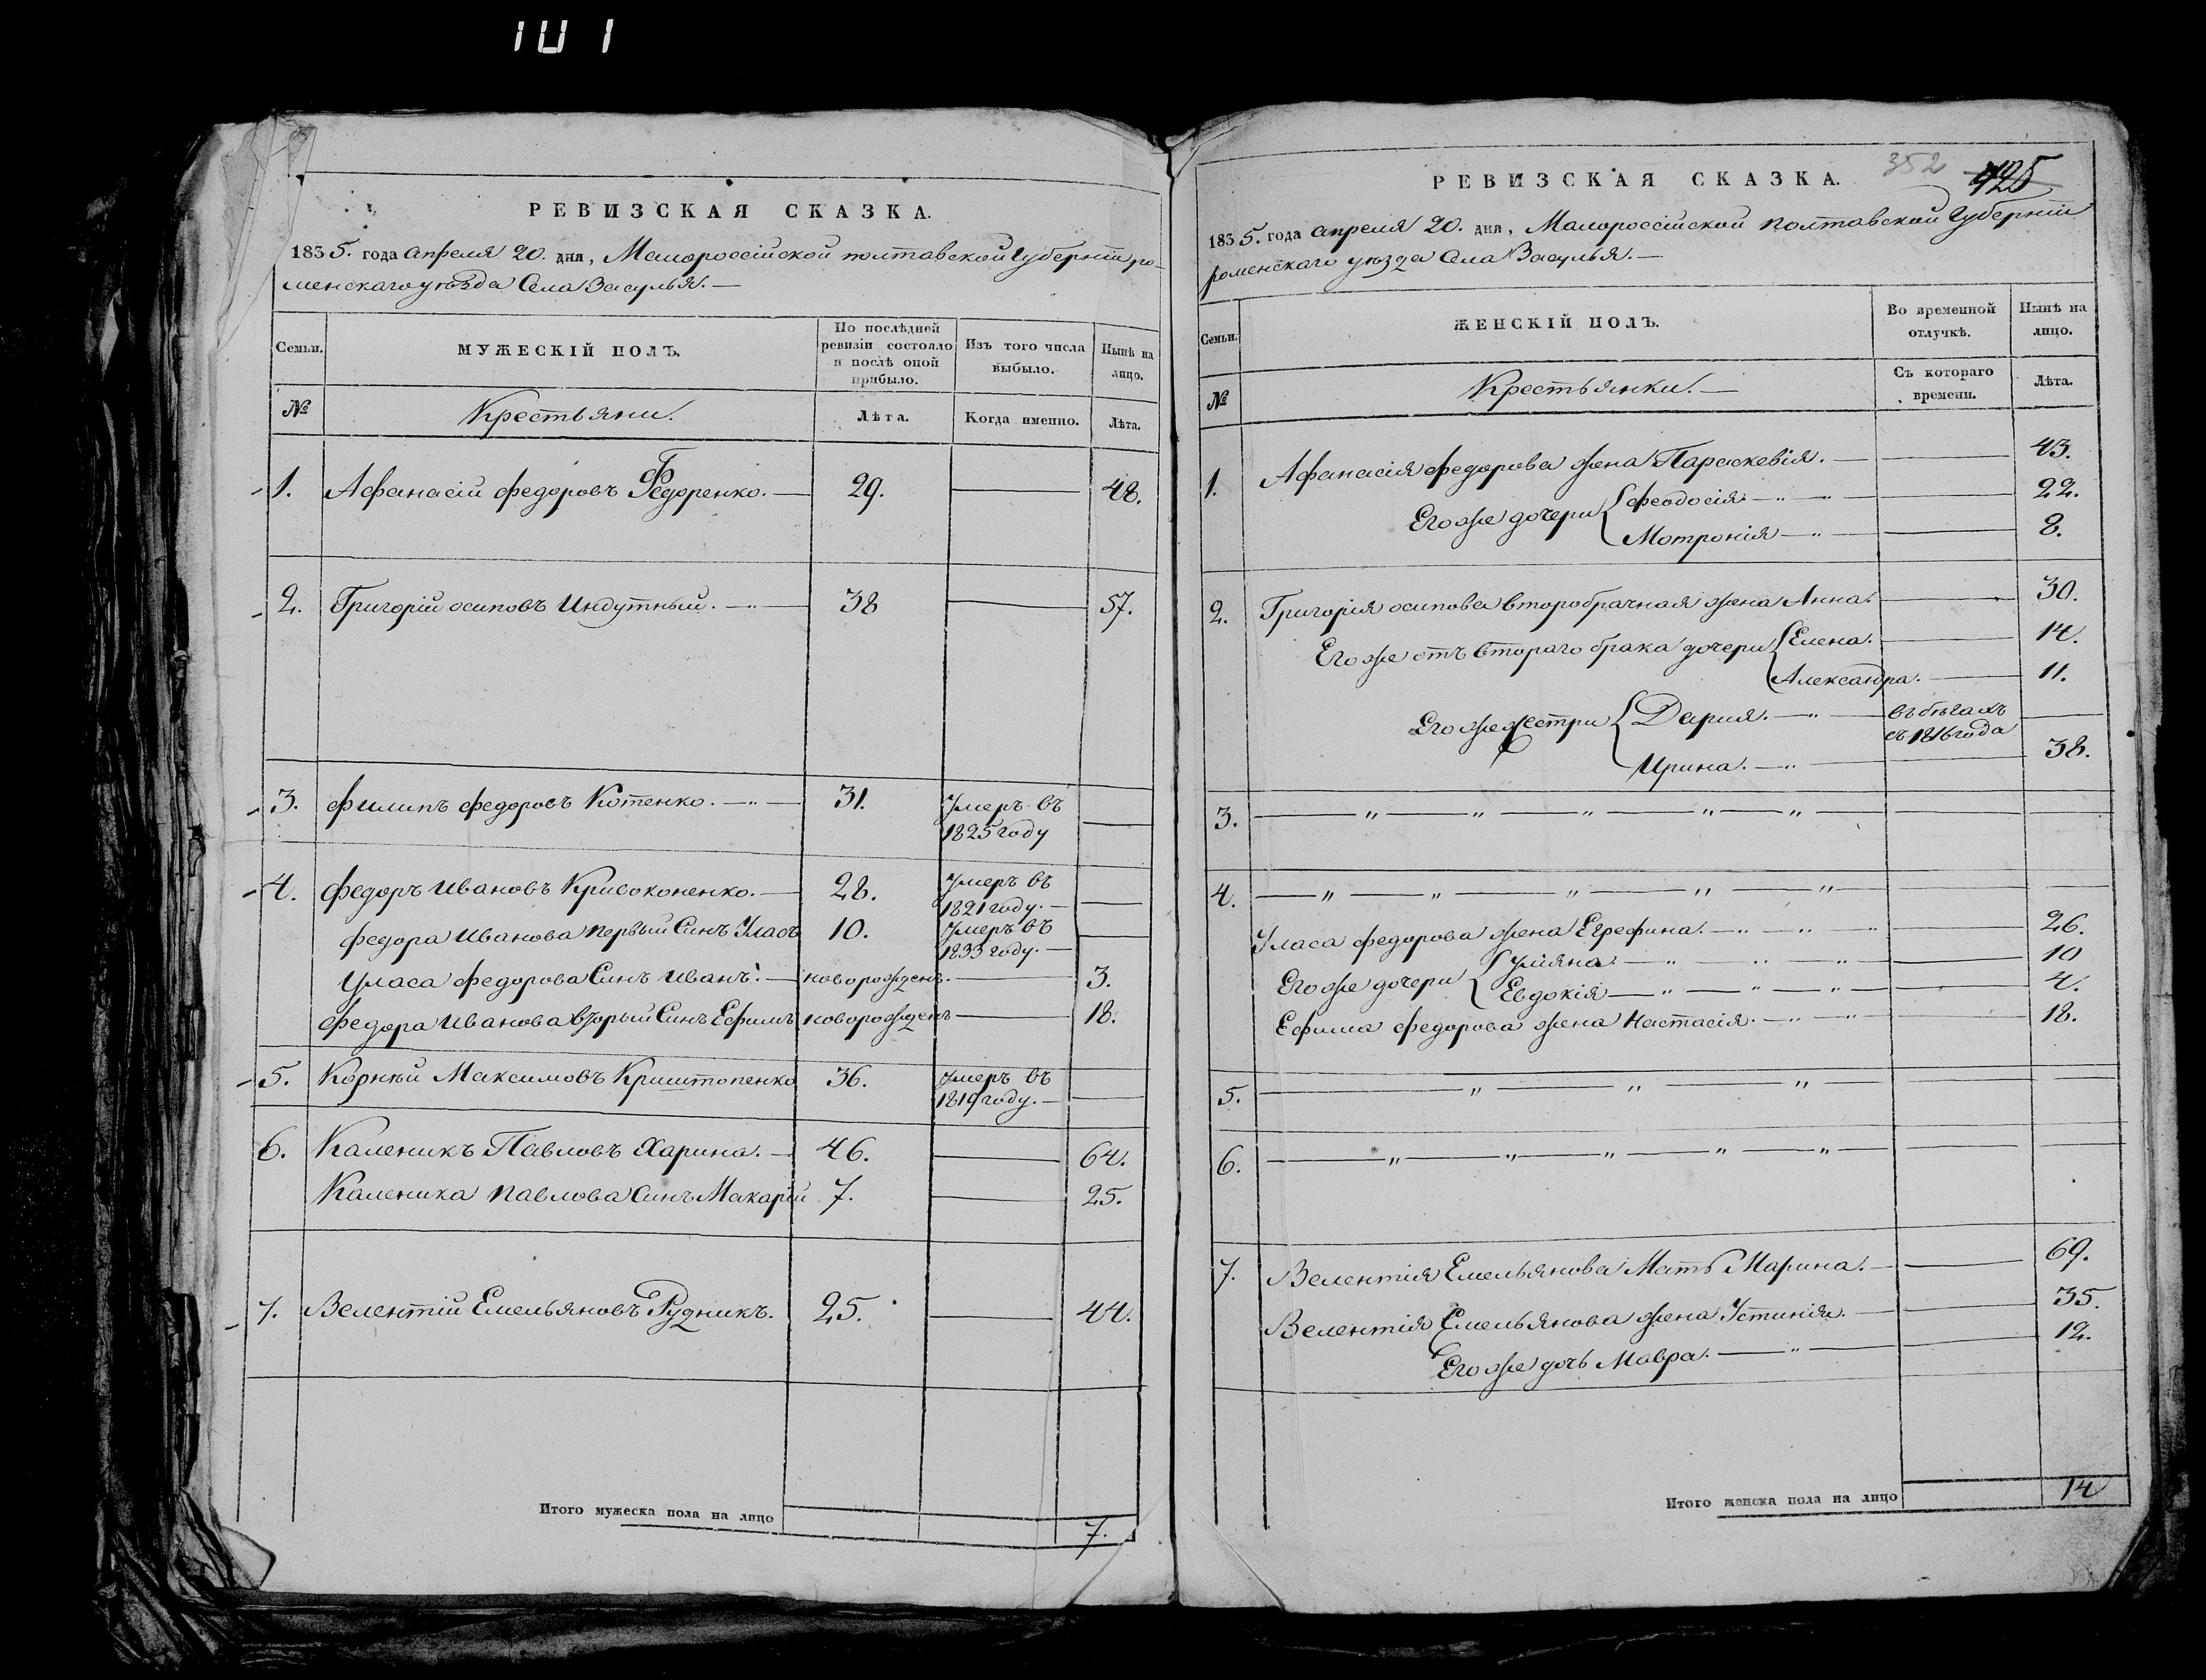 101
РЕВИЗСКАЯ СКАЗКА.
1835. года апреля 20. дня, Малороссійской полтавской Губерніи ро-
менскаго уѣзда Села Засулья. —
Семьи.
МУЖЕСКІЙ ПОЛЪ.
По послѣдней ревизіи состояло и послѣ оной прибыло.
Изъ того числа выбыло.
Нынѣ на лицо.
№
Крестьяни.
Лѣта.
Когда именно.
Лѣта.
1. Афанасій федоровъ Федоренко. — 29. — 48.
2. Григорій осиповъ Индутный. — 38 — 57.
3. филипъ федоровъ Котенко. — 31. Умеръ въ —
1825 году
4. федоръ ивановъ Кривоконенко. — 28. Умеръ въ —
1821 году. —
федора иванова первый Синъ Уласъ 10. Умеръ въ —
1833 году. —
Уласа федорова Синъ иванъ. — новорожденъ. — 3.
федора иванова вторый Синъ Ефимъ новорожденъ — 18.
5. Корнѣй Максимовъ Криштопенко 36. Умеръ въ —
1819 году. —
6. Каленикъ Павловъ Харина. — 46. — 64.
Каленика павлова Синъ Макарій 7. — 25.
7. Велентій Емельяновъ Рудникъ. 25. — 44.
Итого мужеска пола на лицо 7.
352 425
РЕВИЗСКАЯ СКАЗКА.
1835. года апреля 20. дня, Малороссійской полтавской Губерніи
роменскаго уѣзда Села Засулья. —
Семьи.
ЖЕНСКІЙ ПОЛЪ.
Во временной отлучкѣ.
Нынѣ на лицо.
№
Крестьянки. —
Съ котораго времени.
Лѣта.
1. Афанасія федорова жена Параскевія. — 43.
Его же дочери { феодосія — 22.
Мотронія — 8.
2. Григорія осипова второбрачная жена Анна. — 30.
Его же отъ втораго брака дочери { Елена. — 14.
Александра. — 11.
Его же сестри { Дария. — въ бѣгахъ —
съ 1816 года
Ирина. — 38.
3. — " — " — " — " — " —
4. — " — " — " — " — " —
Уласа федорова жена Егрефина. — 26.
Его же дочери { Уліяна — 10
Евдокія — 4.
Ефима федорова жена Настасія. — 18.
5. — " — " — " —
6. — " — " — " — " — " —
7. Велентія Емельянова Мать Марина. — 69.
Велентія Емельянова жена Устинія. — 35.
Его же дочь Мавра. — 12.
Итого женска пола на лицо 14